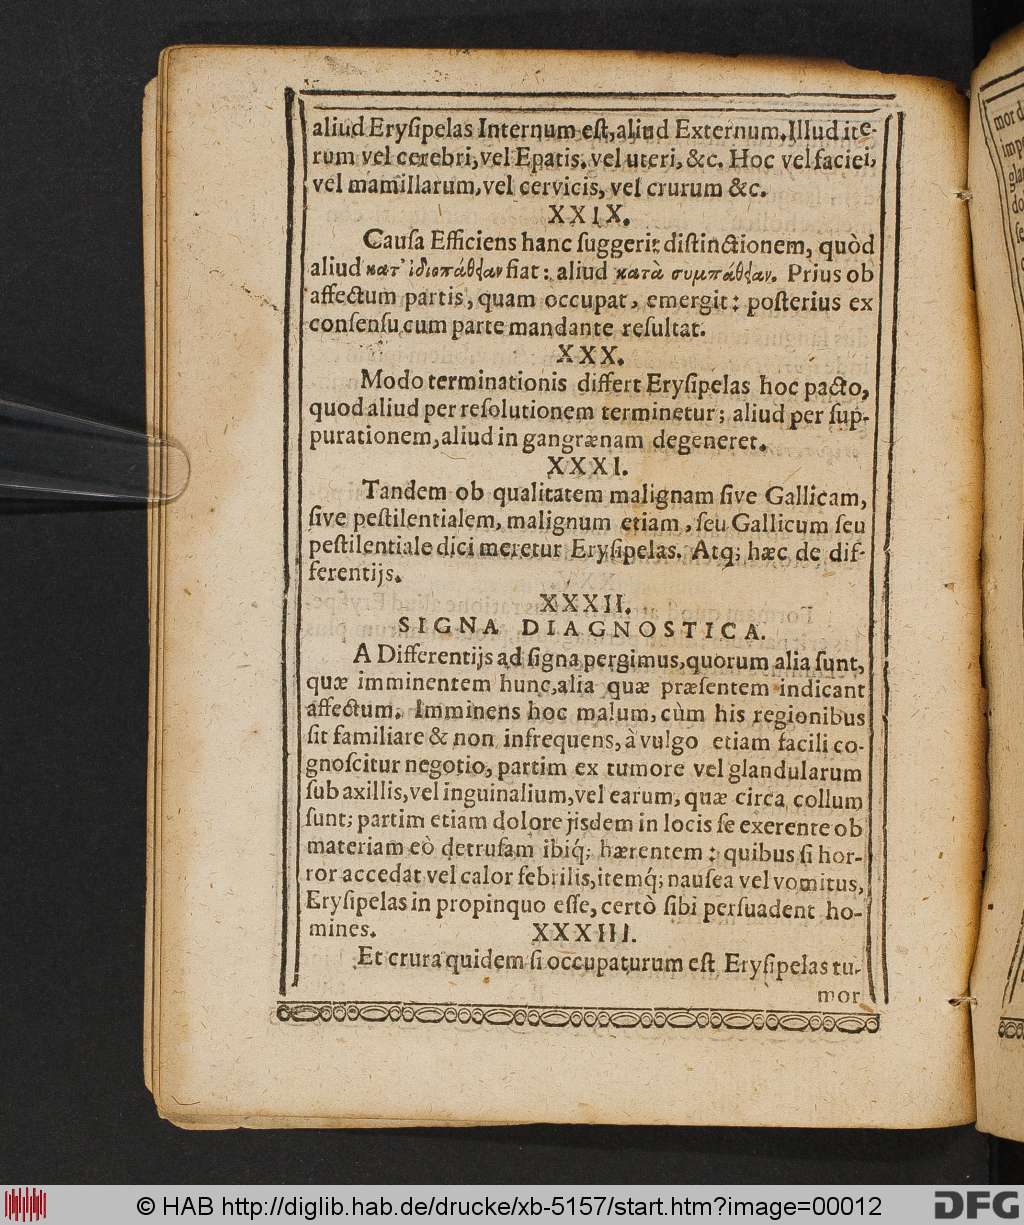 aliud Erysipelas Internum est, aliud Externum. Illud ite-
rum vel cerebri, vel Epatis, vel uteri, &c. Hoc vel faciei,
vel mamillarum, vel cervicis, vel crurum &c.
XXIX.
Causa Efficiens hanc suggerit distinctionem, quòd
aliud κατ' ἰδιοπάθειαν fiat: aliud κατὰ συμπάθειαν. Prius ob
affectum partis, quam occupat, emergit: posterius ex
consensu cum parte mandante resultat.
XXX.
Modo terminationis differt Erysipelas hoc pacto,
quod aliud per resolutionem terminetur; aliud per sup-
purationem, aliud in gangrænam degeneret.
XXXI.
Tandem ob qualitatem malignam sive Gallicam,
sive pestilentialem, malignum etiam, seu Gallicum seu
pestilentiale dici meretur Erysipelas. Atq; hæc de dif-
ferentijs.
XXXII.
SIGNA DIAGNOSTICA.
A Differentijs ad signa pergimus, quorum alia sunt,
quæ imminentem hunc, alia quæ præsentem indicant
affectum. Imminens hoc malum, cùm his regionibus
sit familiare & non infrequens, à vulgo etiam facili co-
gnoscitur negotio, partim ex tumore vel glandularum
sub axillis, vel inguinalium, vel earum, quæ circa collum
sunt; partim etiam dolore jisdem in locis se exerente ob
materiam eò detrusam ibiq́; hærentem: quibus si hor-
ror accedat vel calor febrilis, itemq́; nausea vel vomitus,
Erysipelas in propinquo esse, certò sibi persuadent ho-
mines.
XXXIII.
Et crura quidem si occupaturum est Erysipelas tu-
mor
© HAB http://diglib.hab.de/drucke/xb-5157/start.htm?image=00012
DFG